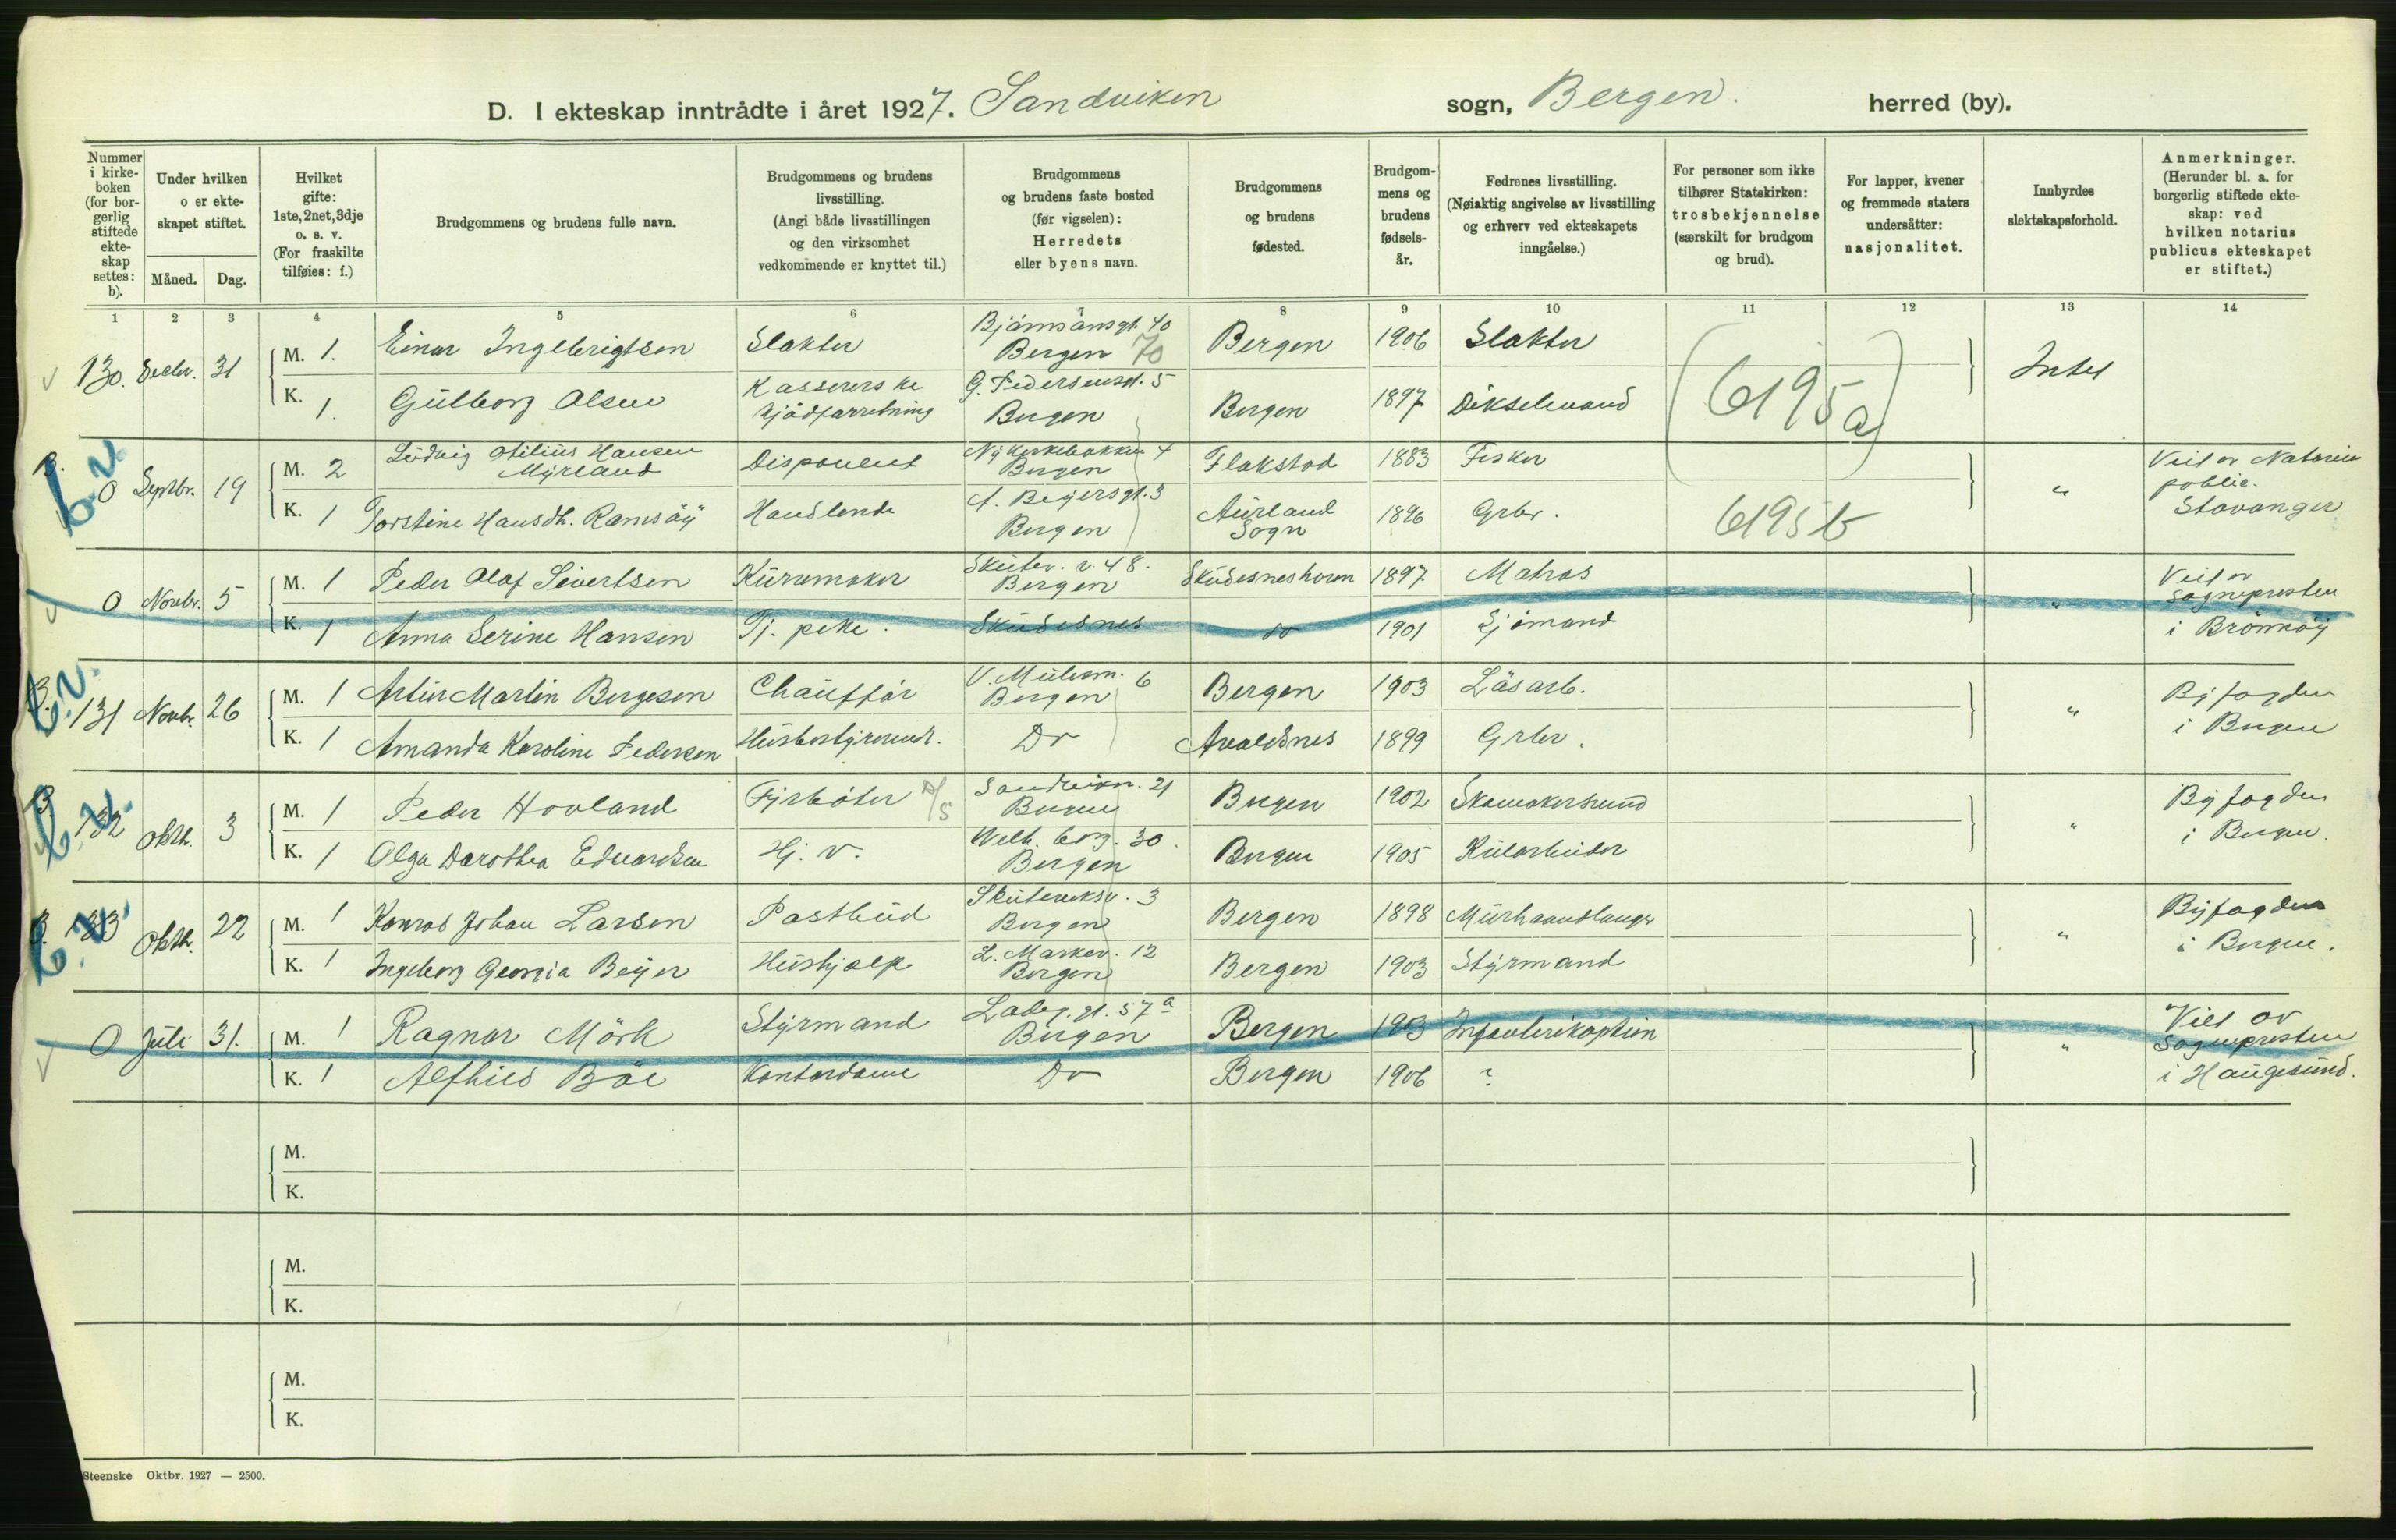 D. I ekteskap inntrådte i året 1927. Sandviken sogn, Bergen. herred (by).
Nummer i kirkeboken (for borgerlig stiftede ekteskap settes: b).
Under hvilken o er ekteskapet stiftet.
Måned. Dag.
Hvilket gifte: 1ste, 2net, 3dje o. s. v. (For fraskilte tilføies: f.)
Brudgommens og brudens fulle navn.
Brudgommens og brudens livsstilling. (Angi både livsstillingen og den virksomhet vedkommende er knyttet til.)
Brudgommens og brudens faste bosted (før vigselen): Herredets eller byens navn.
Brudgommens og brudens fødested.
Brudgommens og brudens fødselsår.
Fedrenes livsstilling. (Nøiaktig angivelse av livsstilling og erhverv ved ekteskapets inngåelse.)
For personer som ikke tilhører Statskirken: trosbekjennelse (særskilt for brudgom og brud).
For lapper, kvener og fremmede staters undersåtter: nasjonalitet.
Innbyrdes slektskapsforhold.
Anmerkninger. (Herunder bl. a. for borgerlig stiftede ekteskap: ved hvilken notarius publicus ekteskapet er stiftet.)
1 2 3 4 5 6 8 9 10 11 12 13 14
130. Decbr. 31 M. 1. Einar Ingebrigtsen Slakter Bjørnsonsgt. 40 Bergen 70 Bergen 1906 Slakter Intet
K. 1. Gulborg Olsen Kassererske Kjødforretning G. Pedersensgt. 5 Bergen Bergen 1897 Dikselmand
(6195a)
B. 0 Septbr. 19 M. 2 Ludvig Otilius Hansen Myrland Disponent Nykirkebakken 4 Bergen Flakstad 1883 Fisker " Viet av Notarius public. Stavanger
K. 1 Torstine Hansdtr. Ramsøy Handlende A. Beyersgt. 3 Bergen Aurland Sogn 1896 Grbr. 6195b
0 Novbr. 5 M. 1 Peder Olaf Sivertsen Kurvmaker Skutev. v. 48. Bergen Skudesneshavn 1897 Matros " Viet av Sognepresten i Brønnøy
K. 1 Anna Serine Hansen Tj. pike. Skudesnes do 1901 Sjømand
B. 131 Novbr. 26 M. 1 Artur Martin Bergesen Chauffør V. Mulesm. 6 Bergen Bergen 1903 Løsarb. " Byfogden i Bergen
K. 1 Amanda Karoline Pedersen Husbestyrerinde. Do Avaldsnes 1899 Grbr.
B. 132 Oktbr. 3 M. 1 Peder Hovland Fyrbøter D/S Sandviksv. 21 Bergen Bergen 1902 Skomakersvend " Byfogden i Bergen.
K. 1 Olga Dorothea Edvardsen Hj. v. Welh. borg. 30. Bergen Bergen 1905 Kularbeider
B. 133 Oktbr. 22 M. 1 Konrad Johan Larsen Postbud Skuteviksv. 3 Bergen Bergen 1898 Murhaandlanger " Byfogden i Bergen.
K. 1 Ingeborg Georgia Beyer Hushjælp L. Markev. 12 Bergen Bergen 1903 Styrmand
0 Juli 31. M. 1 Ragnar Mörk Styrmand Ladeg. gt. 57a Bergen Bergen 1903 Infanterikaptein " Viet av Sognepresten i Haugesund.
K. 1 Alfhild Böe Kontordame Do Bergen 1906 ?
M.
K.
M.
K.
M.
K.
Steenske Oktbr. 1927 — 2500.